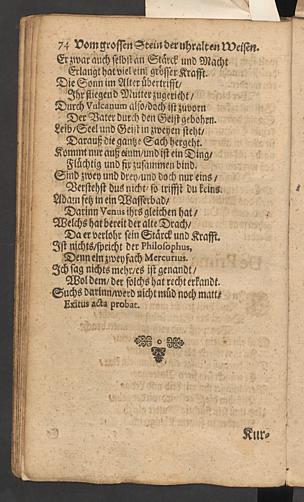 74 Vom grossen Stein der uhralten Weisen.
Er zwar auch selbst an Stärck und Macht
Erlangt hat viel ein grösser Krafft.
Die Sonn im Alter übertrifft/
Ihr fliegend Mutter zugericht/
Durch Vulcanum also/doch ist zuvorn
Der Vater durch den Geist gebohrn.
Leib/Seel und Geist in zweyen steht/
Darauß die gantze Sach hergeht.
Kommt nur auß einm/und ist ein Ding/
Flüchtig und fix zusammen bind.
Sind zwey und drey/und doch nur eins/
Verstehst dus nicht/ so triffst du keins.
Adam setz in ein Wasserbad/
Darinn Venus ihrs gleichen hat/
Welchs hat bereit der alte Drach/
Da er verlohr sein Stärck und Krafft.
Ist nichts/spricht der Philosophus,
Denn ein zweyfach Mercurius.
Ich sag nichts mehr/es ist genandt/
Wol dem/ der solchs hat recht erkandt.
Suchs darinn/werd nicht müd noch matt/
Exitus acta probat.
Kur⸗